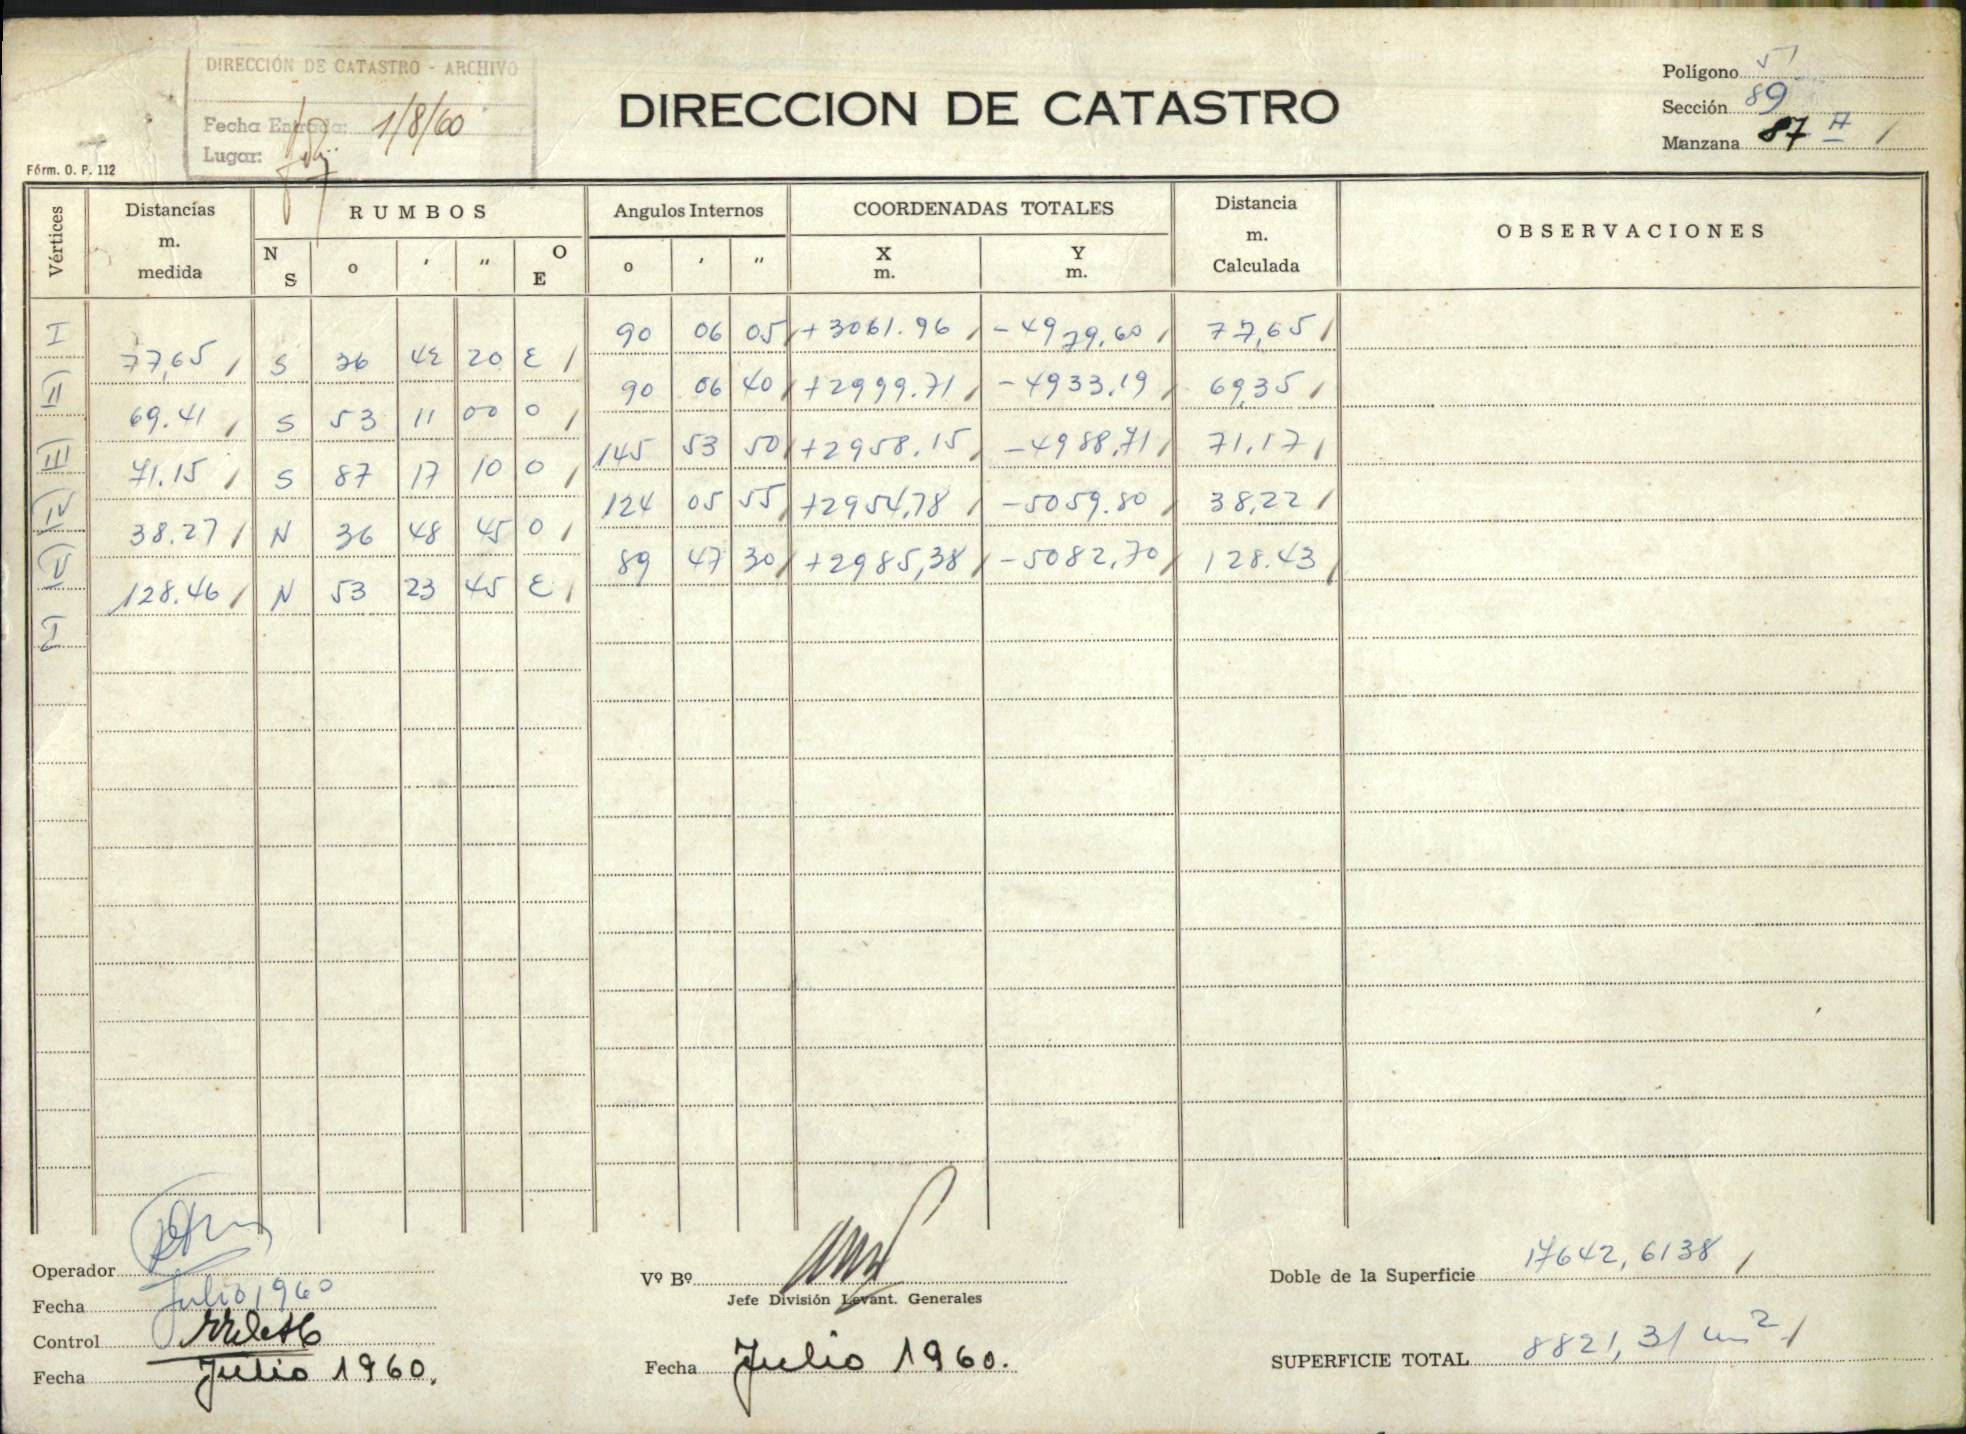 DIRECCIÓN DE CATASTRO - ARCHIVO
Fecha Entrada: 1/8/60
Lugar:
Fórm. O. P. 112
DIRECCION DE CATASTRO
Polígono 51
Sección 89
Manzana 87 A /
Vértices
Distancias m. medida
RUMBOS
N S o ' " O E
Angulos Internos
o ' "
COORDENADAS TOTALES
X m. Y m.
Distancia m. Calculada
OBSERVACIONES
I 90 06 05 / +3061.96 / -4979,60 / 77,65 /
77,65 / S 36 42 20 E /
II 90 06 40 / +2999.71 / -4933,19 / 69,35 /
69.41 / S 53 11 00 O /
III 145 53 50 / +2958,15 / -4988,71 / 71,17 /
71.15 / S 87 17 10 O /
IV 124 05 55 / +2954,78 / -5059.80 / 38,22 /
38.27 / N 36 48 45 O /
V 89 47 30 / +2985,38 / -5082,70 / 128.43 /
128.46 / N 53 23 45 E /
I
Operador
Fecha Julio 1960
Control
Fecha Julio 1960.
Vº Bº
Jefe División Levant. Generales
Fecha Julio 1960.
Doble de la Superficie 17642,6138 /
SUPERFICIE TOTAL 8821,31 m² /